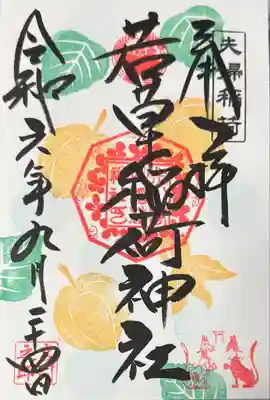 夫婦稲荷
奉拝
稲荷神社
令和六年九月二十四日